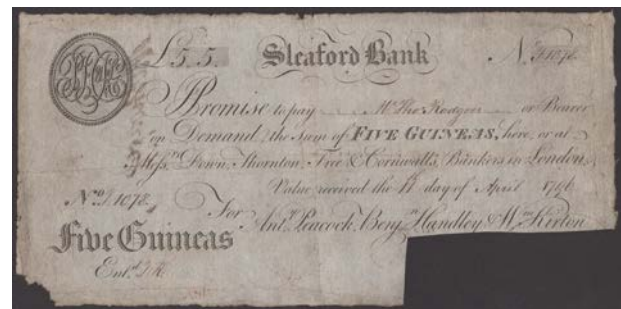 £5.5. Sleaford Bank N.º F.1078.
I Promise to pay Mr. Tho. Rodgers or Bearer
on Demand, the Sum of FIVE GUINEAS, here, or at
Messrs. Down, Thornton, Free & Cornwall's, Bankers in London,
Value received the day of April 1796
N.º F.1078.
For Ant.y Peacock, Benj.n Handley & W.m Kirton
Five Guineas
Ent.d